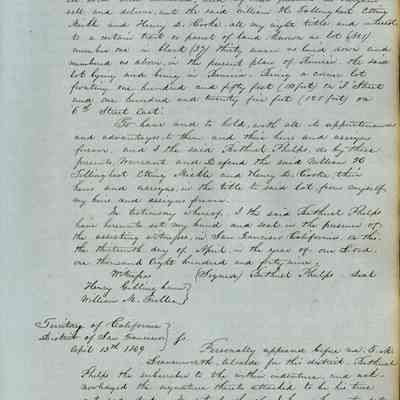 sell and deliver, unto the said William H. Tillinghast Etting
Mickle and Henry D. Cooke all my right title and interest
to a certain tract or parcel of land known as lot (No 1)
number one in block (37) thirty seven as laid down and
numbered as above, in the present plan of Benicia. the said
lot lying and being in Benicia. Being a corner lot
fronting one hundred and fifty feet (150 feet) on I Street
and one hundred and twenty five feet (125 feet) on
6th Street East.
To have and to hold, with all its appurtenances
and advantages, to them and their heirs and assigns
forever, and I the said Bethuel Phelps, do by these
presents, Warrant and Defend the said William H
Tillinghast Etting Mickle and Henry D. Cooke their
heirs and assigns, in the title to said lot, from myself,
my heirs and assigns forever.
In testimony whereof, I the said Bethuel Phelps
have hereunto set my hand and seal in the presence of
the assisting witnesses, in San Francisco California, on this
the thirteenth day of April in the year of our Lord
one thousand eight hundred and forty nine,
Witness (Signed) Bethuel Phelps Seal
Henry Gillingham }
William M. Fuller }
Territory of California }
District of San Francisco } ss.
April 13th 1849 Personally appeared before me T. M.
Leavenworth, Alcalde for this district Bethuel
Phelps the subscriber to the within indenture and ack-
nowledged the signature thereto attached to be his true